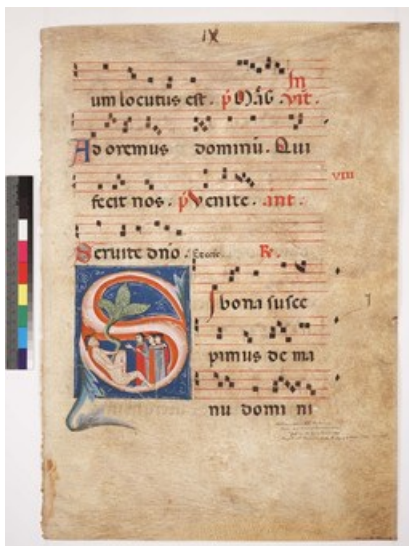 IX
In
um locutus est. p̄ Māb. vit.
Ad oremus dominū. Qui
VIII
fecit nos. p̄ Venite. ant.
Seruite dn̄o. R.
Si bona susce
pimus de ma
nu domi ni